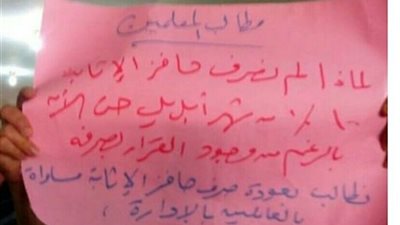 مطالب المعلمين
لماذا لم تصرف حافز الإثابة
١٠٪ من شهر أبريل حتى الآن
بالرغم من وجود القرار بصرفه
نطالب بعودة صرف حافز الإثابة مساواة
بالعاملين بالإدارة